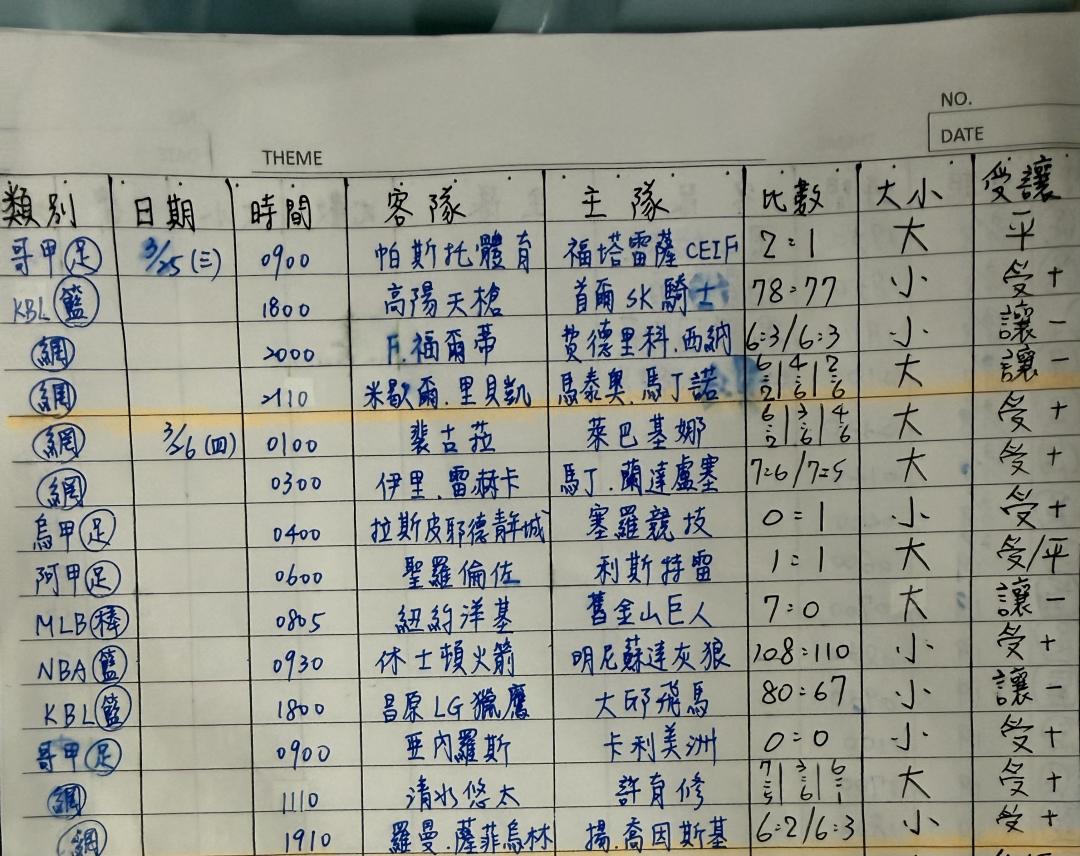 NO.
DATE
THEME
類別 日期 時間 客隊 主隊 比數 大小 受讓
哥甲足 3/25(三) 0900 帕斯托體育 福塔雷薩CEIF 2:1 大 平
KBL籃 1800 高陽天槍 首爾SK騎士 78:77 小 受+
網 2000 F.福爾蒂 費德里科.西納 6:3/6:3 小 讓-
網 2110 米歇爾.里貝凱 馬泰奧.馬丁諾 6:2|4:6|2:6 大 讓-
網 3/26(四) 0100 裴古菈 萊巴基娜 6:2|3:6|4:6 大 受+
網 0300 伊里.雷赫卡 馬丁.蘭達盧塞 7:6/7:5 大 受+
烏甲足 0400 拉斯皮耶德青年城 塞羅競技 0:1 小 受+
阿甲足 0600 聖羅倫佐 利斯特雷 1:1 大 受/平
MLB棒 0805 紐約洋基 舊金山巨人 7:0 大 讓-
NBA籃 0930 休士頓火箭 明尼蘇達灰狼 108:110 小 受+
KBL籃 1800 昌原LG獵鷹 大邱飛馬 80:67 小 讓-
哥甲足 0900 亚內羅斯 卡利美洲 0:0 小 受+
網 1110 清水悠太 許育修 7:5|3:6|6:1 大 受+
網 1910 羅曼.薩菲烏林 揚.喬因斯基 6:2/6:3 小 受+